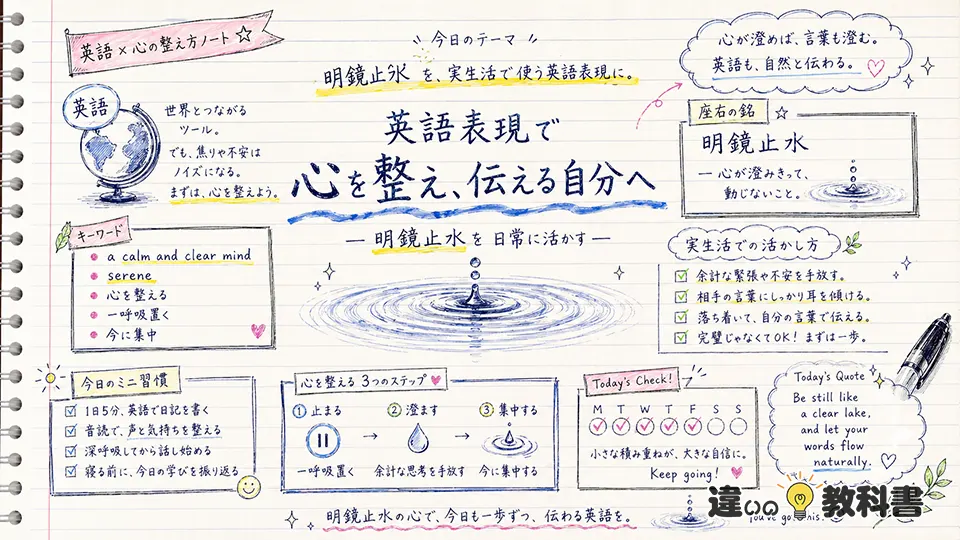 英語×心の整え方ノート☆
今日のテーマ
明鏡止水 を、実生活で使う英語表現に。
心が澄めば、言葉も澄む。
英語も、自然と伝わる。
英語
世界とつながる
ツール。
でも、焦りや不安は
ノイズになる。
まずは、心を整えよう。
英語表現で
心を整え、伝える自分へ
― 明鏡止水を日常に活かす ―
座右の銘
明鏡止水
― 心が澄みきって、
動じないこと。
キーワード
a calm and clear mind
serene
心を整える
一呼吸置く
今に集中
実生活での活かし方
余計な緊張や不安を手放す。
相手の言葉にしっかり耳を傾ける。
落ち着いて、自分の言葉で伝える。
完璧じゃなくてOK! まずは一歩。
今日のミニ習慣
1日5分、英語で日記を書く
音読で、声と気持ちを整える
深呼吸してから話し始める
寝る前に、今日の学びを振り返る
心を整える 3つのステップ
① 止まる
② 澄ます
③ 集中する
一呼吸置く
余計な思考を手放す
今に集中する
Today's Check!
M T W T F S S
小さな積み重ねが、大きな自信に。
Keep going!
Today's Quote
Be still like
a clear lake,
and let your
words flow
naturally.
明鏡止水の心で、今日も一歩ずつ、伝わる英語を。
違いの教科書